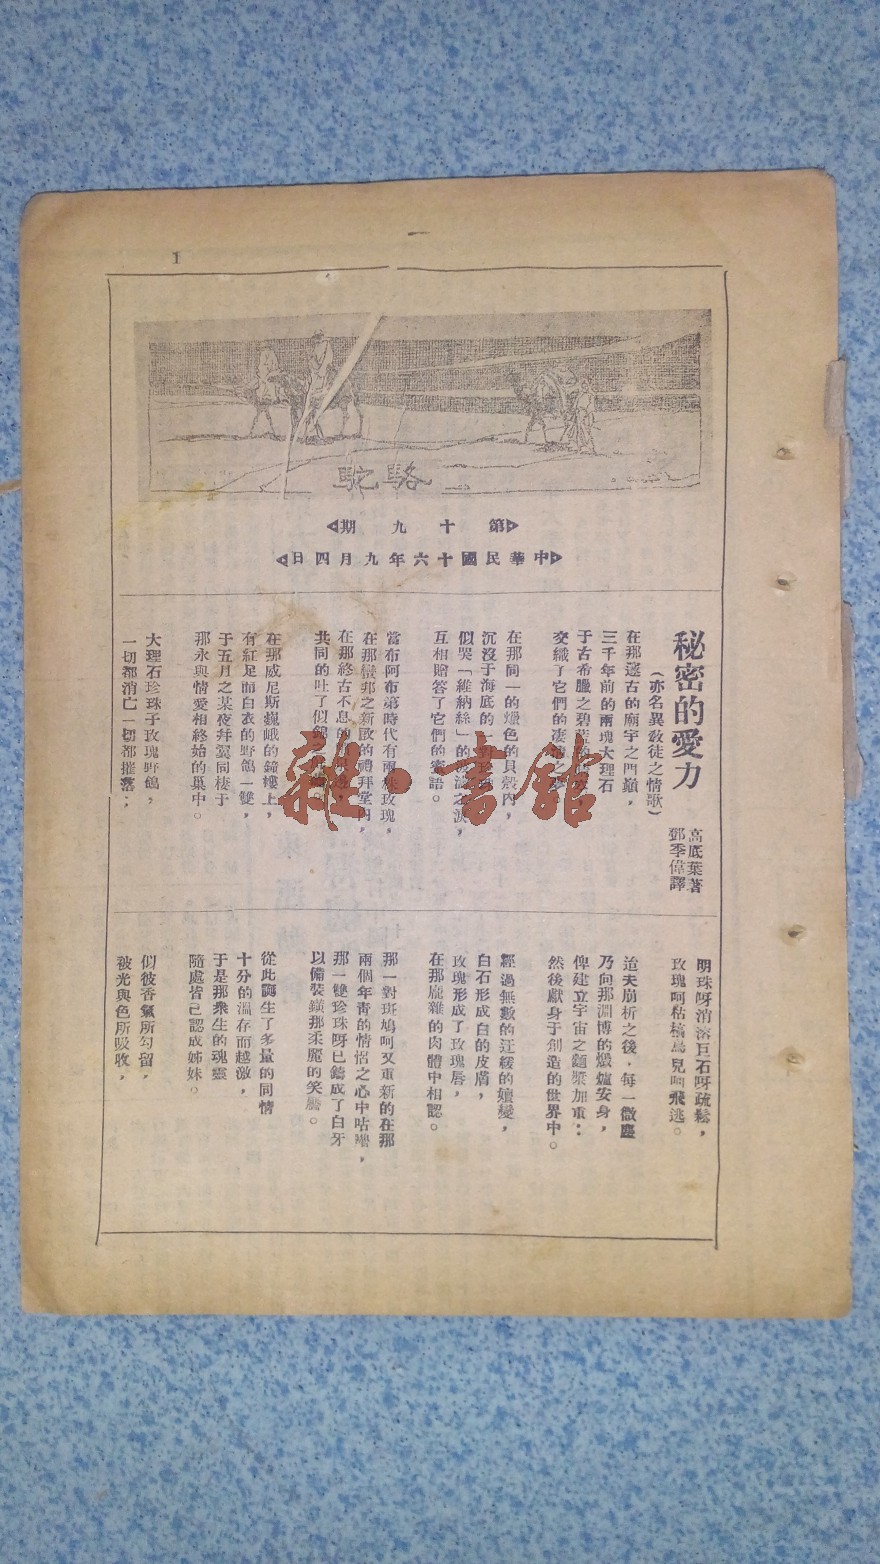 1
駱駝
第十九期
中華民國十六年九月四日
秘密的愛力
(亦名異教徒之情歌)
高底葉著
鄧季偉譯
在那邃古的廟宇之門顛,
三千年前的兩塊大理石
于古希臘之碧
交織了它們的凄清之夢
在那同一的爐色的貝殼內,
沉沒于海底的一對珍珠
似哭「維納絲」的
互相贈答了它們的蜜語。
當布阿布第時代有兩株玫瑰,
在那蠻邦之新啟的禮拜堂內,
在那終古不息的
共同的吐了似錦
在那威尼斯巍峨的鐘樓上,
有紅足而白衣的野鴿一雙,
于五月之某夜幷翼同棲于
那永與情愛相終始的巢中。
大理石珍珠子玫瑰野鴿,
一切都消亡一切都摧落:,
明珠呀消溶巨石呀疏鬆,
玫瑰呵粘槁鳥兒呵飛逃。
迨夫崩析之後,每一微塵
乃向那淵博的爐安身,
俾建立宇宙之麵漿加重:
然後獻身于創造的世界中。
經過無數的迂緩的嬗變,
白石形成白的皮膚,
玫瑰形成了玫瑰唇,
在那龐雜的肉體中相認。
那一對斑鳩呵又重新的在那
兩個年青的情侶之心中咕嚕,
那一雙珍珠呀已鑄成了白牙
以備裝鑲那柔麗的笑靨。
從此誕生了多量的同情
十分的溫存而越激,
于是那衆生的魂靈
隨處皆已認成姊妹。
似彼香氣所勾留,
被光與色所吸收,
雜·書館